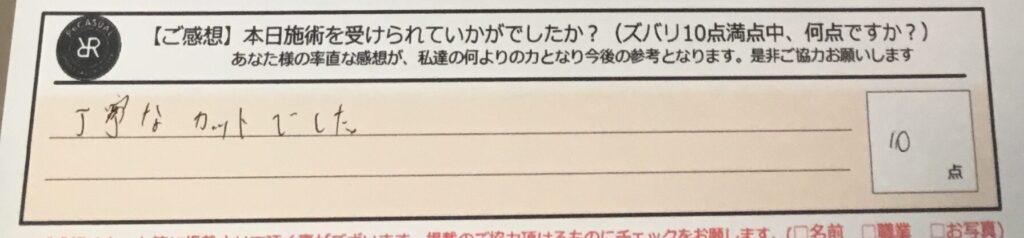 PrCASUAL
RR
【ご感想】本日施術を受けられていかがでしたか？（ズバリ10点満点中、何点ですか？）
あなた様の率直な感想が、私達の何よりの力となり今後の参考となります。是非ご協力お願いします
丁寧な カットでした
10
点
掲載のご協力頂けるものにチェックをお願します。(□名前 □職業 □お写真)